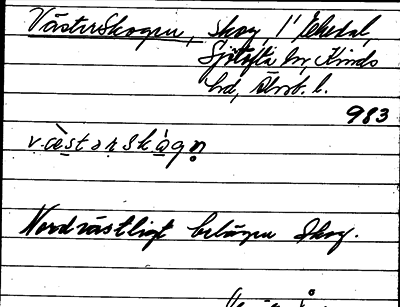 Västerskogen, skog, i Ekedal,
Sjötofta sn, Kinds
hd, Älvsb. l.
983
væstərskógn̥
Nordvästligt belägen skog.